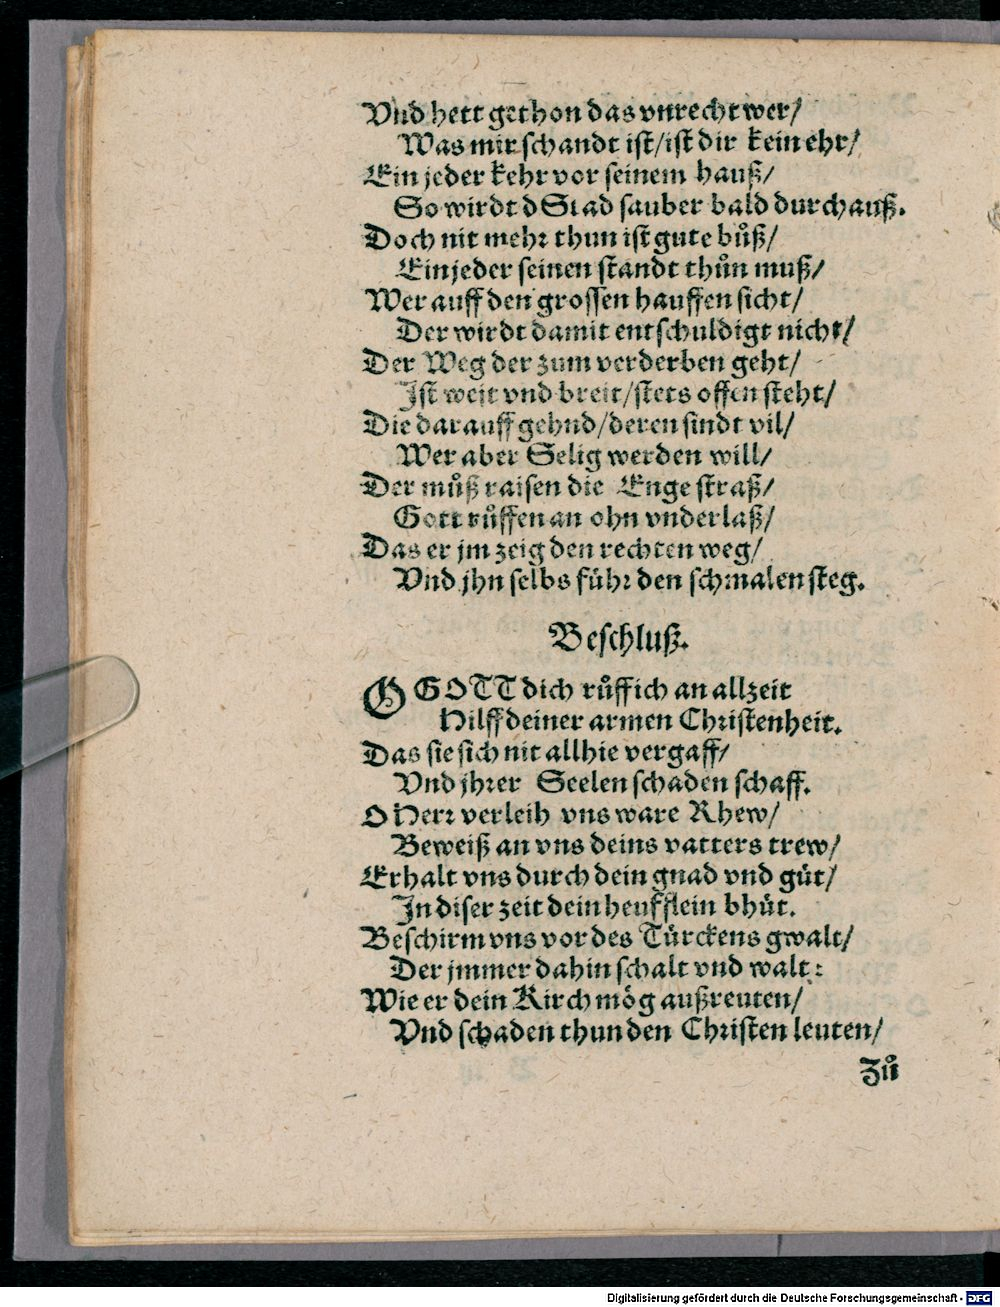 Vnd hett gethon das vnrecht wer/
Was mir schandt ist/ist dir kein ehr/
Ein jeder kehr vor seinem hauß/
So wirdt d Stad sauber bald durchauß.
Doch nit mehr thun ist gute bůß/
Ein jeder seinen standt thůn muß/
Wer auff den grossen hauffen sicht/
Der wirdt damit entschuldigt nicht/
Der Weg der zum verderben geht/
Ist weit vnd breit/stets offen steht/
Die darauff gehnd/deren sindt vil/
Wer aber Selig werden will/
Der můß raisen die Enge straß/
Gott růffen an ohn vnderlaß/
Das er jm zeig den rechten weg/
Vnd jhn selbs führ den schmalen steg.
Beschluß.
O GOTT dich růff ich an allzeit
Hilff deiner armen Christenheit.
Das sie sich nit allhie vergaff/
Vnd jhrer Seelen schaden schaff.
O Herr verleih vns ware Rhew/
Beweiß an vns deins vatters trew/
Erhalt vns durch dein gnad vnd güt/
In diser zeit dein heufflein bhüt.
Beschirm vns vor des Türckens gwalt/
Der jmmer dahin schalt vnd walt:
Wie er dein Kirch mög außreuten/
Vnd schaden thun den Christen leuten/
Zů
Digitalisierung gefördert durch die Deutsche Forschungsgemeinschaft - DFG